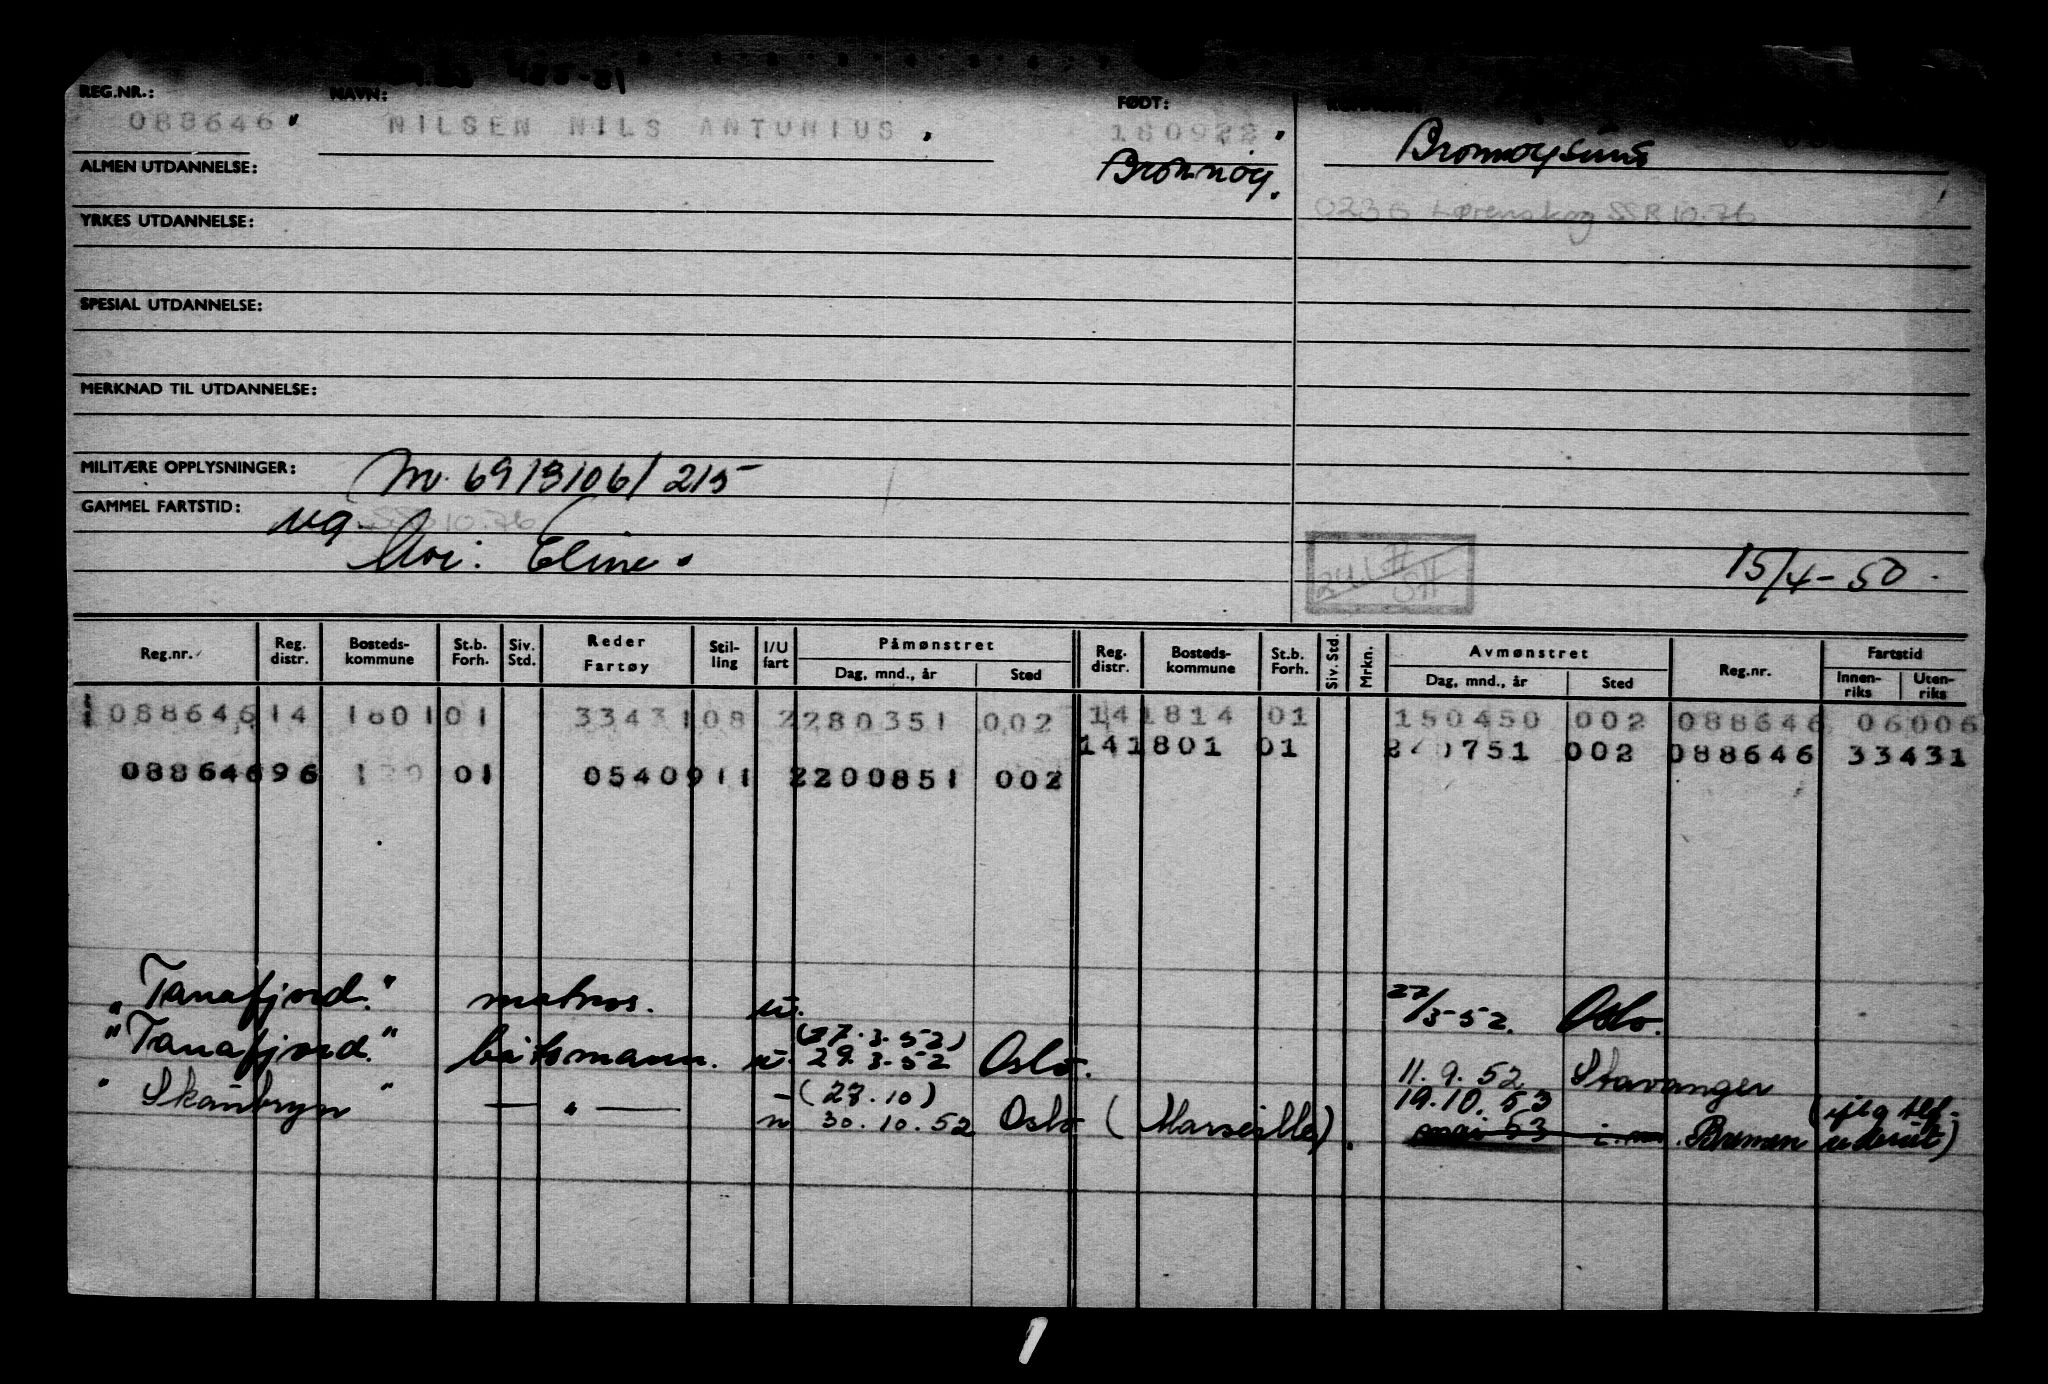 REG.NR.: NAVN: FØDT:
088646 NILSEN NILS ANTONIUS 180922 Brønnøysund
ALMEN UTDANNELSE: Brønnøy.
YRKES UTDANNELSE: 0236 Lørenskog SSR 10.76
SPESIAL UTDANNELSE:
MERKNAD TIL UTDANNELSE:
MILITÆRE OPPLYSNINGER: M. 69/3106/215
GAMMEL FARTSTID: SSR 10.76
Mor: Eline. 15/4-50
Reg.nr. Reg. distr. Bosteds-kommune St.b. Forh. Siv. Std. Reder Fartøy Stil-ling I/U fart Påmønstret Dag, mnd., år Sted Reg. distr. Bosteds-kommune St.b. Forh. Siv. Std. Mrkn. Avmønstret Dag, mnd., år Sted Reg.nr. Fartstid Innen-riks Uten-riks
088646 14 1801 01 33431 08 2 280351 002 14 1814 01 150450 002 088646 06006
14 1801 01 240751 002 088646 33431
088646 96 01 05409 11 2 200851 002
"Tanafjord." matros. u. 27/3-52. Oslo.
"Tanafjord." båtsmann. u. (27.3.52) 29.3.52 Oslo. 11.9.52 Stavanger
"Skaubryn" — " — (27.10) 30.10.52 Oslo (Marseille). 19.10.53
mai 53 Bremen